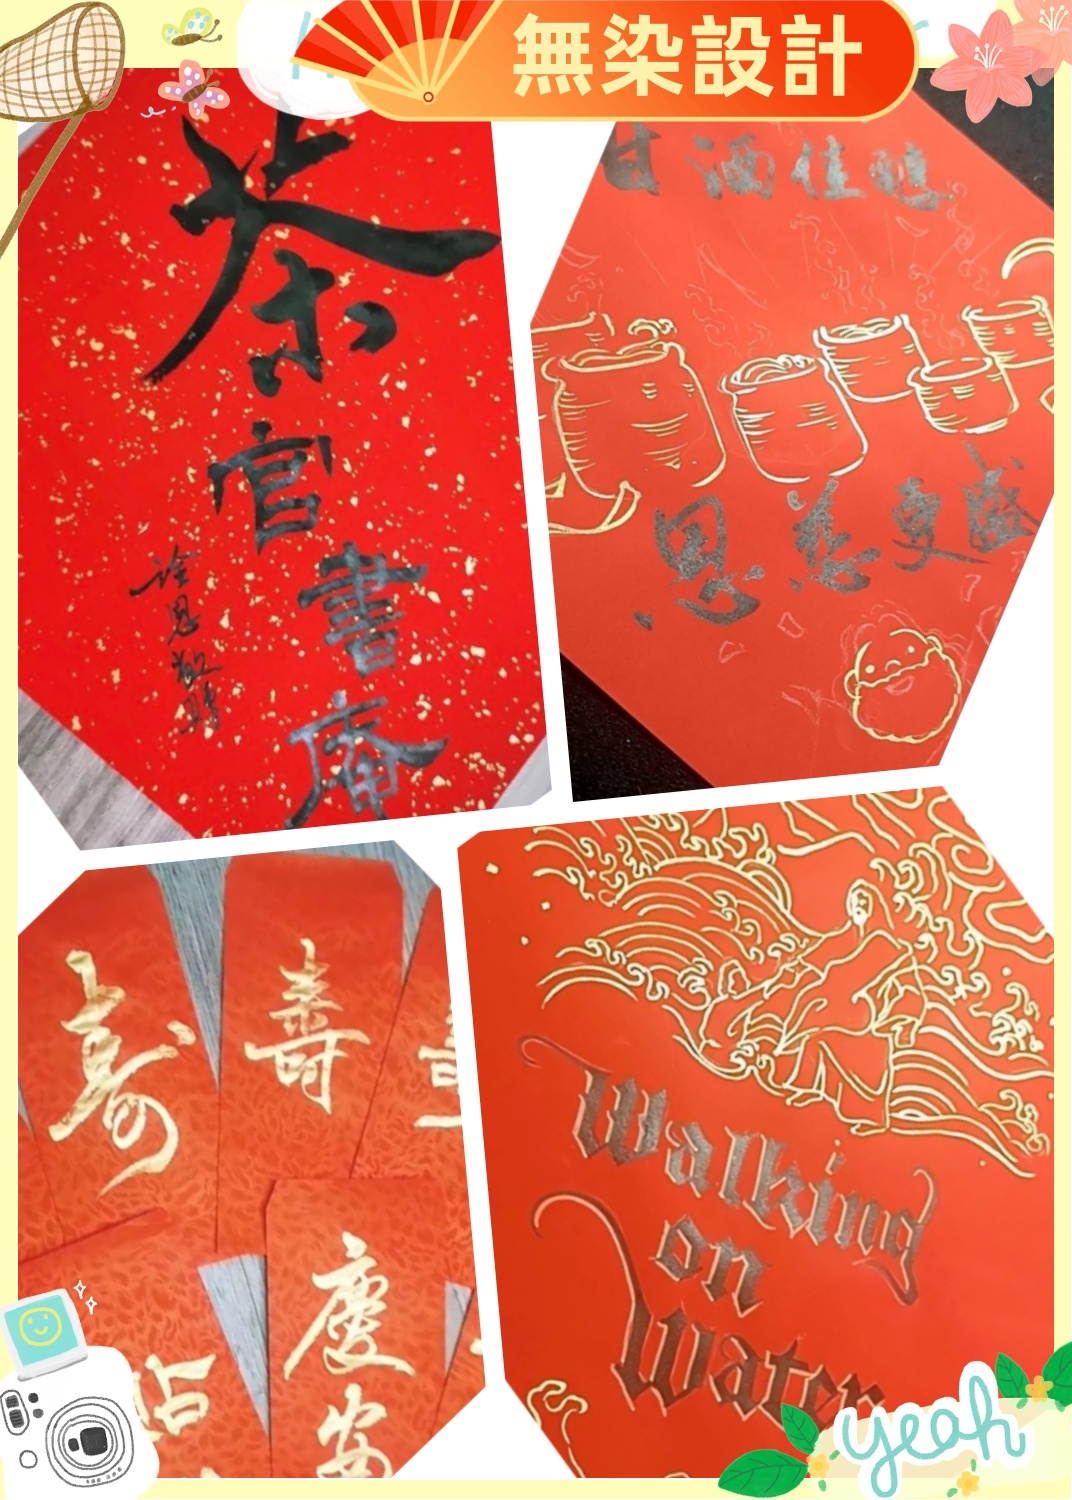 無染設計
茶官書庵
詮恩敬贈
甘酒佳釀
恩慈更盛
壽
壽
慶安
Walking
on
Water
yeah